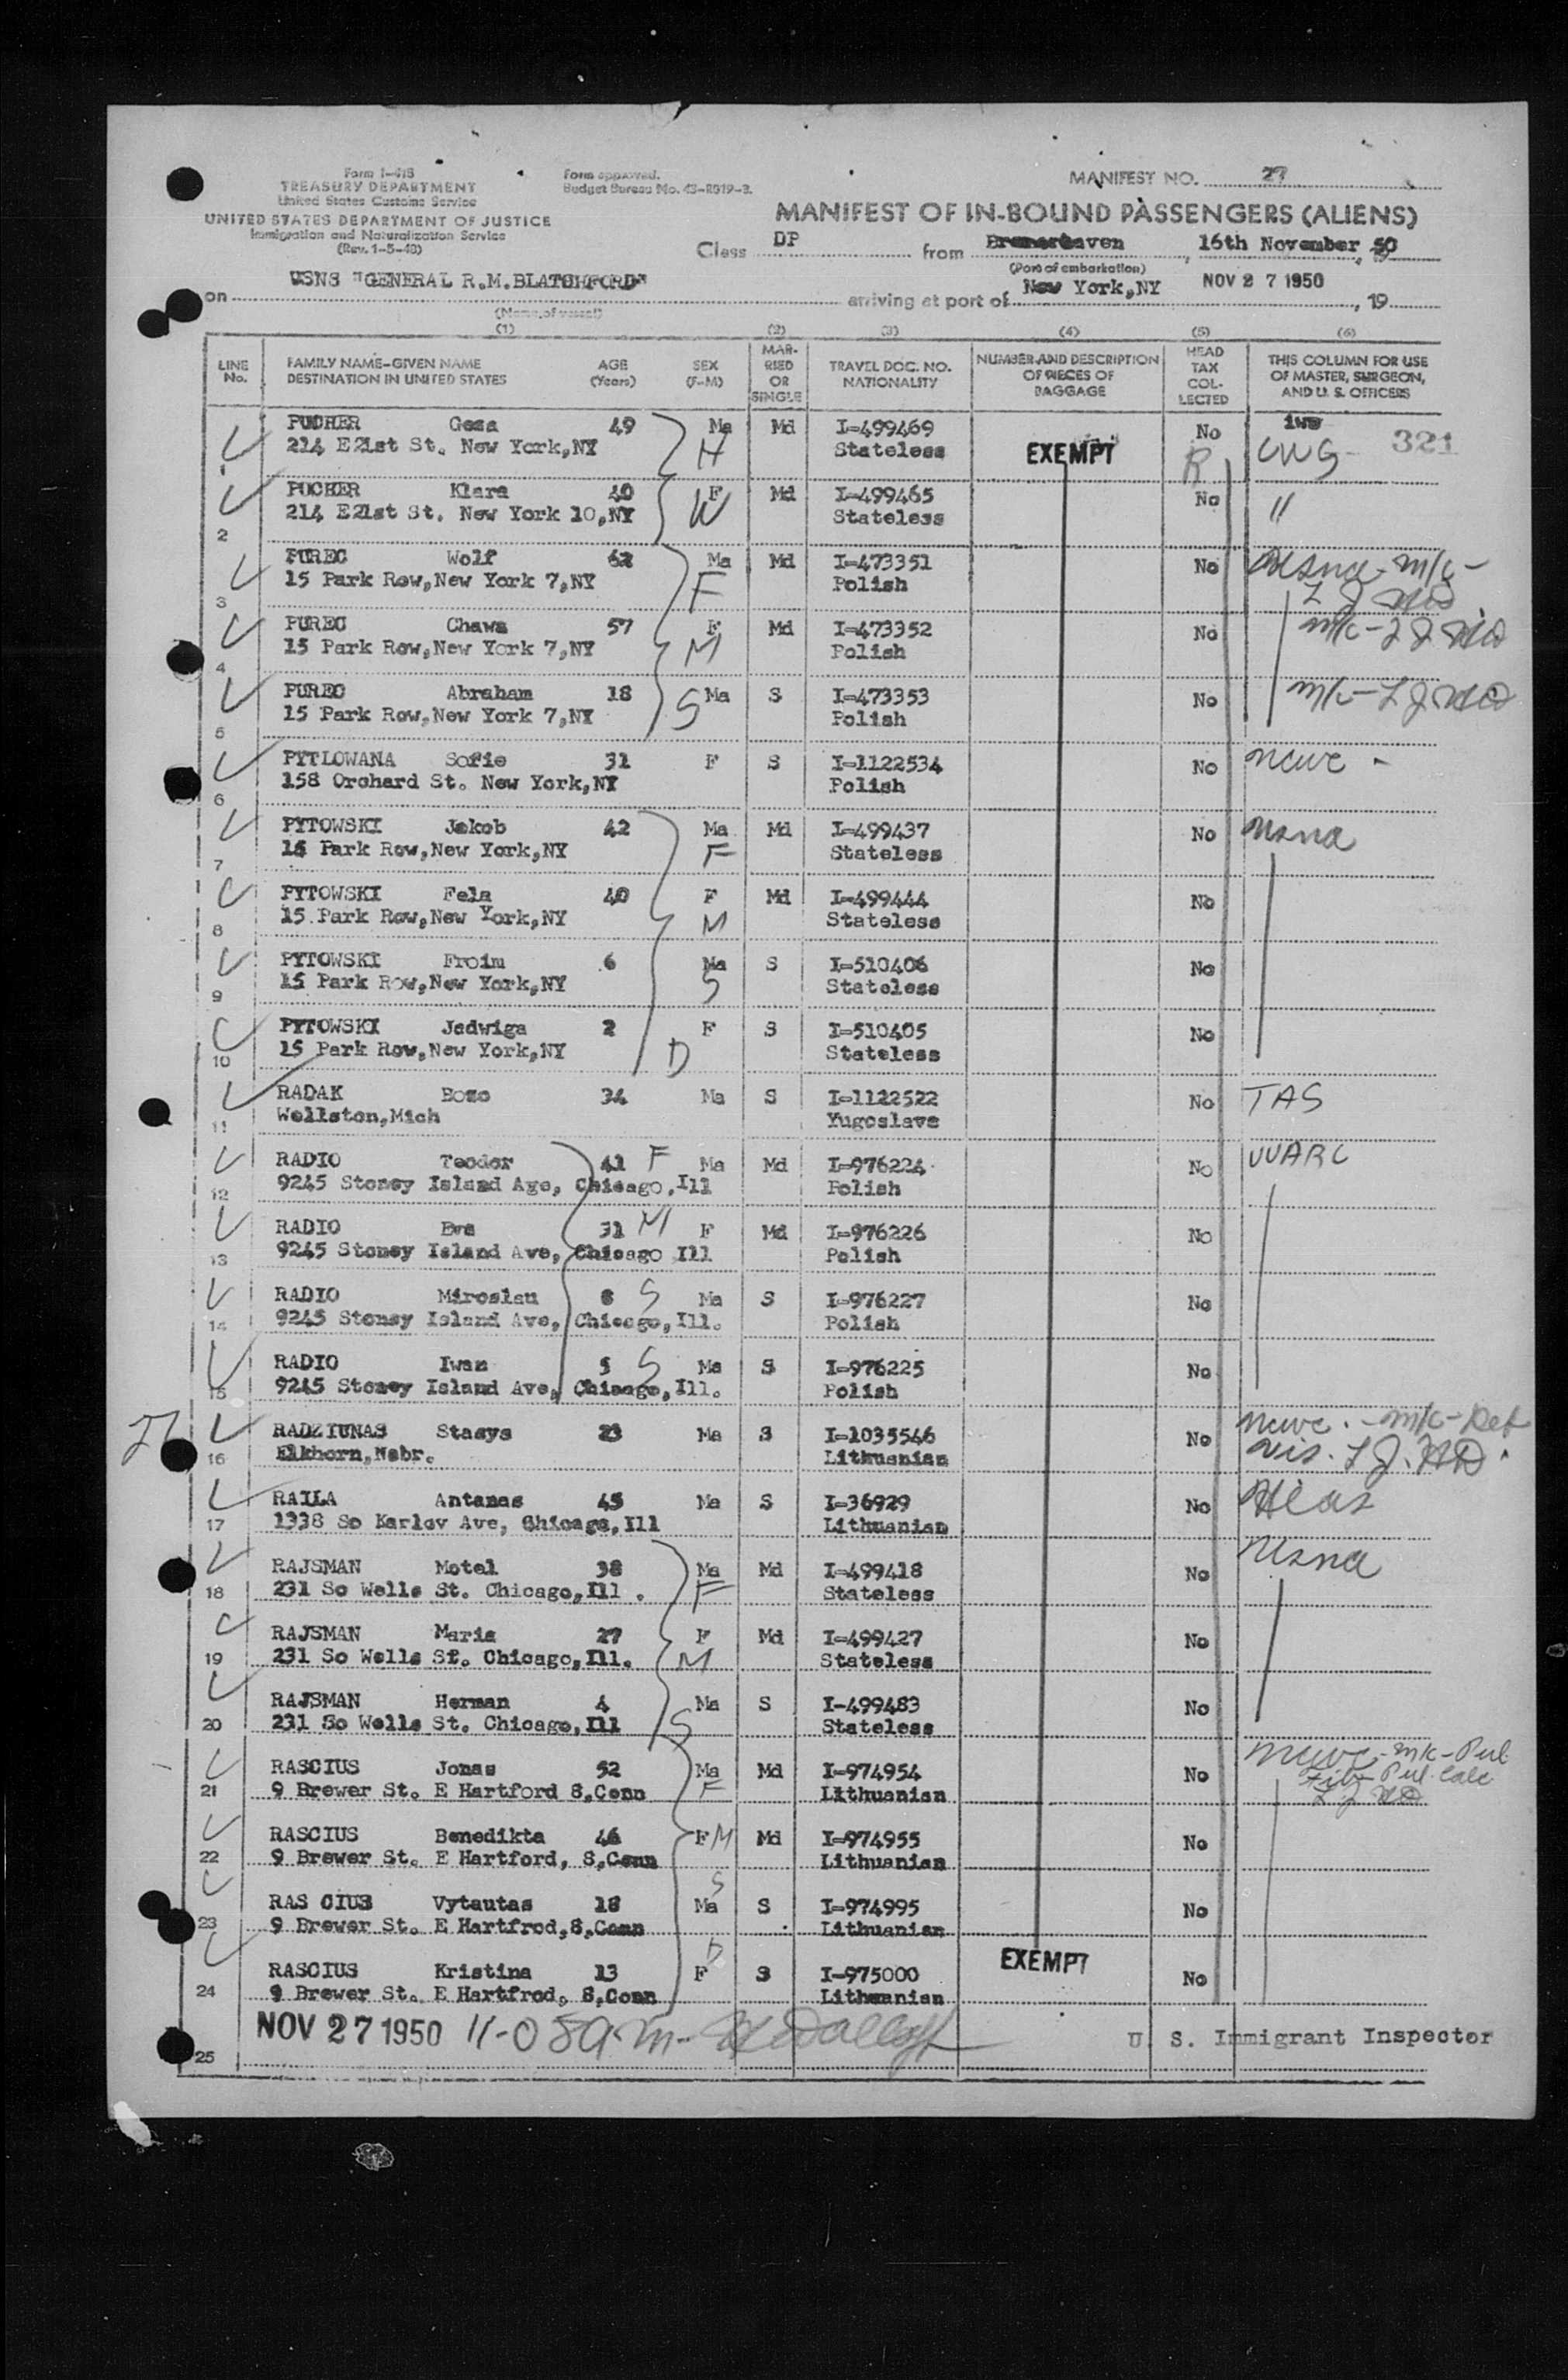 Form I-418
TREASURY DEPARTMENT
United States Customs Service
UNITED STATES DEPARTMENT OF JUSTICE
Immigration and Naturalization Service
(Rev. 1-5-48)
Form approved.
Budget Bureau No. 43-R019-3.
MANIFEST NO. 27
MANIFEST OF IN-BOUND PASSENGERS (ALIENS)
Class DP from Bremerhaven, 16th November, 50
(Port of embarkation)
on USNS "GENERAL R.M.BLATCHFORD" arriving at port of New York,NY NOV 27 1950, 19
(Name of vessel)
(1) (2) (3) (4) (5) (6)
LINE No. FAMILY NAME-GIVEN NAME DESTINATION IN UNITED STATES AGE (Years) SEX (F-M) MARRIED OR SINGLE TRAVEL DOC. NO. NATIONALITY NUMBER AND DESCRIPTION OF PIECES OF BAGGAGE HEAD TAX COLLECTED THIS COLUMN FOR USE OF MASTER, SURGEON, AND U. S. OFFICERS
PUCHER Geza 49 Ma H Md I-499469 EXEMPT No R CWS 321
1 214 E21st St. New York,NY Stateless
PUCHER Klara 40 F W Md I-499465 No "
2 214 E21st St. New York 10,NY Stateless
PUREC Wolf 62 Ma F Md I-473351 No
3 15 Park Row,New York 7,NY Polish
PUREC Chawa 57 F M Md I-473352 No
4 15 Park Row,New York 7,NY Polish
PUREC Abraham 18 S Ma S I-473353 No
5 15 Park Row,New York 7,NY Polish
PYTLOWANA Sofie 31 F S I-1122534 No ncwc
6 158 Orchard St. New York,NY Polish
PYTOWSKI Jakob 42 Ma F Md I-499437 No usna
7 15 Park Row,New York,NY Stateless
PYTOWSKI Fela 40 F M Md I-499444 No
8 15 Park Row,New York,NY Stateless
PYTOWSKI Froim 6 Ma S S I-510406 No
9 15 Park Row,New York,NY Stateless
PYTOWSKI Jadwiga 2 D F S I-510405 No
10 15 Park Row,New York,NY Stateless
RADAK Bozo 34 Ma S I-1122522 No TAS
11 Wellston,Mich Yugoslave
RADIO Teodor 41 F Ma Md I-976224 No UUARC
12 9245 Stoney Island Age, Chicago,Ill Polish
RADIO Eva 31 M F Md I-976226 No
13 9245 Stoney Island Ave, Chicago Ill Polish
RADIO Miroslau 8 S Ma S I-976227 No
14 9245 Stoney Island Ave, Chicago,Ill. Polish
RADIO Iwan 5 S Ma S I-976225 No
15 9245 Stoney Island Ave, Chicago,Ill. Polish
RADZIUNAS Stasys 23 Ma S I-1035546 No ncwc
16 Elkhorn,Nebr. Lithuanian
RAILA Antanas 45 Ma S I-36929 No Hias
17 1338 So Karlov Ave, Chicago,Ill Lithuanian
RAJSMAN Motel 38 Ma F Md I-499418 No usna
18 231 So Wells St. Chicago,Ill . Stateless
RAJSMAN Maria 27 F M Md I-499427 No
19 231 So Wells St. Chicago,Ill. Stateless
RAJSMAN Herman 4 S Ma S I-499483 No
20 231 So Wells St. Chicago,Ill Stateless
RASCIUS Jonas 52 Ma F Md I-974954 No ncwc
21 9 Brewer St. E Hartford 8,Conn Lithuanian
RASCIUS Benedikta 46 F M Md I-974955 No
22 9 Brewer St. E Hartford, 8,Conn Lithuanian
RAS CIUS Vytautas 18 S Ma S I-974995 No
23 9 Brewer St. E Hartfrod,8,Conn Lithuanian
RASCIUS Kristina 13 D F S I-975000 EXEMPT No
24 9 Brewer St. E Hartfrod, 8,Conn Lithuanian
NOV 27 1950 U. S. Immigrant Inspector
25